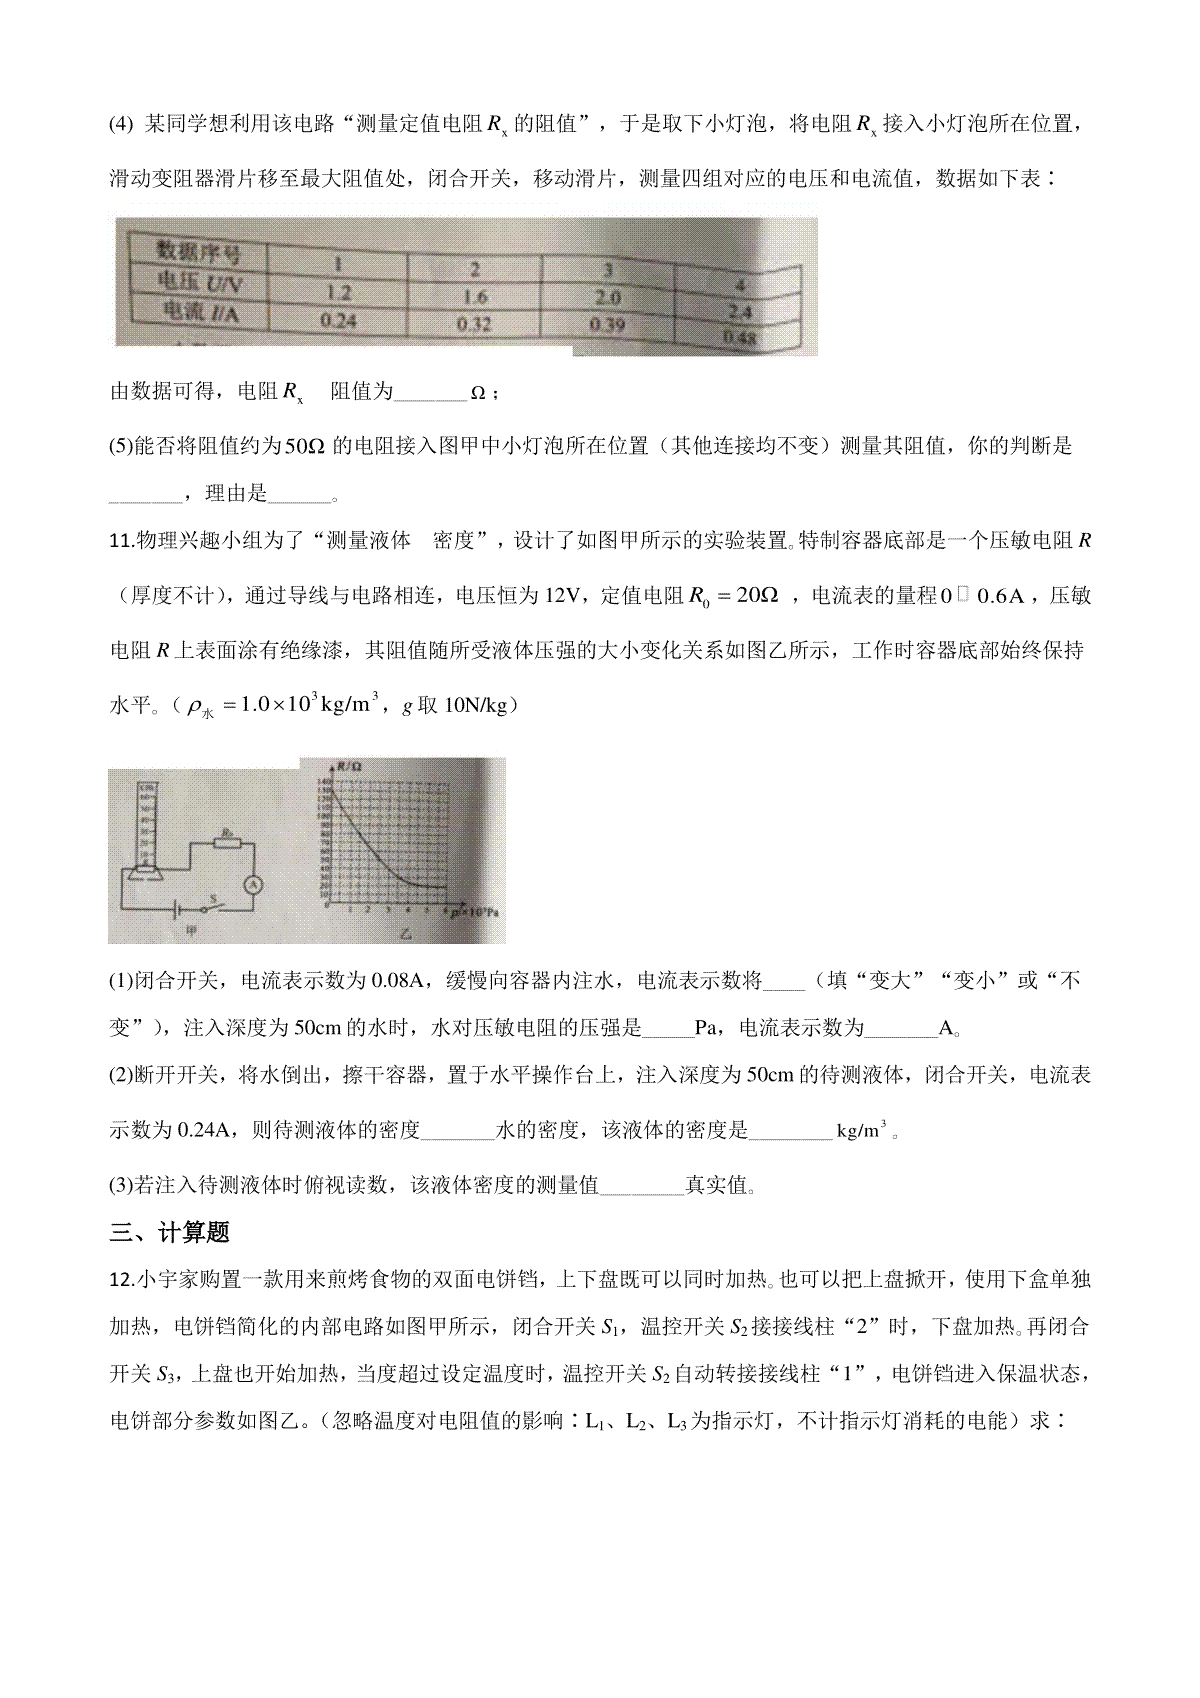 (4) 某同学想利用该电路“测量定值电阻Rₓ的阻值”，于是取下小灯泡，将电阻Rₓ接入小灯泡所在位置，
滑动变阻器滑片移至最大阻值处，闭合开关，移动滑片，测量四组对应的电压和电流值，数据如下表：
数据序号 1 2 3 4
电压 U/V 1.2 1.6 2.0 2.4
电流 I/A 0.24 0.32 0.39 0.48
由数据可得，电阻Rₓ 阻值为_______Ω；
(5)能否将阻值约为50Ω 的电阻接入图甲中小灯泡所在位置（其他连接均不变）测量其阻值，你的判断是
_______，理由是______。
11.物理兴趣小组为了“测量液体 密度”，设计了如图甲所示的实验装置。特制容器底部是一个压敏电阻 R
（厚度不计），通过导线与电路相连，电压恒为 12V，定值电阻R₀ = 20Ω ，电流表的量程0 0.6A，压敏
电阻 R 上表面涂有绝缘漆，其阻值随所受液体压强的大小变化关系如图乙所示，工作时容器底部始终保持
水平。（ρ水 =1.0×10³kg/m³，g 取 10N/kg）
R/Ω
R₀
A
S
甲
0 1 2 3 4 5 6
乙
(1)闭合开关，电流表示数为 0.08A，缓慢向容器内注水，电流表示数将____（填“变大”“变小”或“不
变”），注入深度为 50cm 的水时，水对压敏电阻的压强是_____Pa，电流表示数为_______A。
(2)断开开关，将水倒出，擦干容器，置于水平操作台上，注入深度为 50cm 的待测液体，闭合开关，电流表
示数为 0.24A，则待测液体的密度_______水的密度，该液体的密度是________ kg/m³。
(3)若注入待测液体时俯视读数，该液体密度的测量值________真实值。
三、计算题
12.小宇家购置一款用来煎烤食物的双面电饼铛，上下盘既可以同时加热。也可以把上盘掀开，使用下盒单独
加热，电饼铛简化的内部电路如图甲所示，闭合开关 S₁，温控开关 S₂接接线柱“2”时，下盘加热。再闭合
开关 S₃，上盘也开始加热，当度超过设定温度时，温控开关 S₂自动转接接线柱“1”，电饼铛进入保温状态，
电饼部分参数如图乙。（忽略温度对电阻值的影响：L₁、L₂、L₃为指示灯，不计指示灯消耗的电能）求：